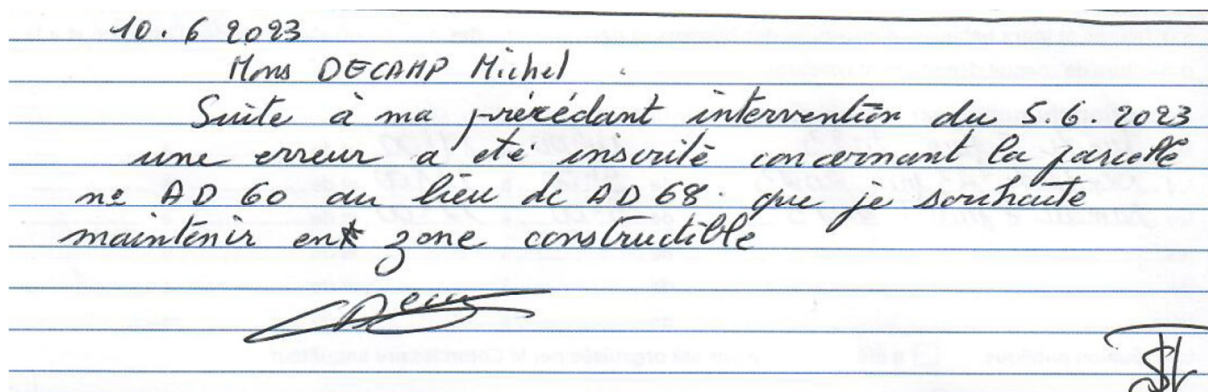 10.6 2023
Mons DECAMP Michel.
Suite à ma précédant intervention du 5.6.2023
une erreur a été inscrité concernant la parcelle
ne AD 60 au lieu de AD 68. que je souhaite
maintenir en zone constructible